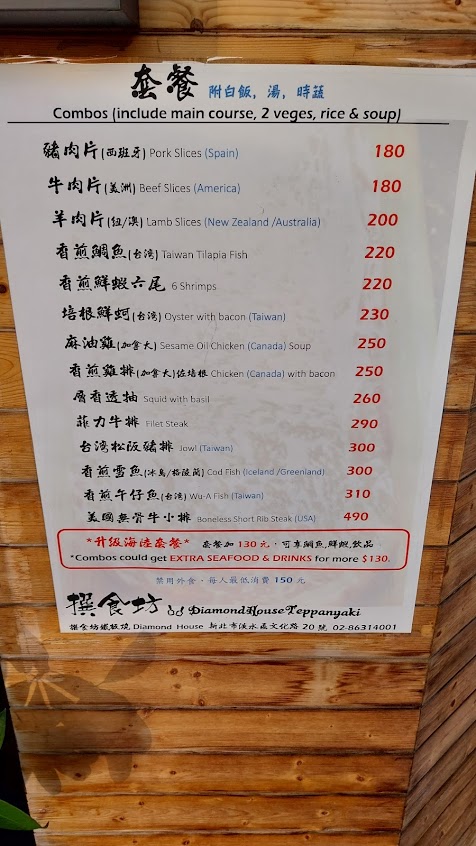 套餐 附白飯, 湯, 時蔬
Combos (include main course, 2 veges, rice & soup)
豬肉片(西班牙) Pork Slices (Spain) 180
牛肉片(美洲) Beef Slices (America) 180
羊肉片(紐/澳) Lamb Slices (New Zealand /Australia) 200
香煎鯛魚(台湾) Taiwan Tilapia Fish 220
香煎鮮蝦六尾 6 Shrimps 220
培根鮮蚵(台湾) Oyster with bacon (Taiwan) 230
麻油雞(加拿大) Sesame Oil Chicken (Canada) Soup 250
香煎雞排(加拿大)佐培根 Chicken (Canada) with bacon 250
層香透抽 Squid with basil 260
菲力牛排 Filet Steak 290
台湾松阪豬排 Jowl (Taiwan) 300
香煎雪魚(冰島/格陵蘭) Cod Fish (Iceland /Greenland) 300
香煎午仔魚(台湾) Wu-A Fish (Taiwan) 310
美國無骨牛小排 Boneless Short Rib Steak (USA) 490
*升級海陸套餐* 套餐加 130 元, 可享鯛魚,鮮蝦,飲品
*Combos could get EXTRA SEAFOOD & DRINKS for more $130.
禁用外食, 每人最低消費 150 元
撰食坊 DiamondHouseTeppanyaki
撰食坊鐵板燒 Diamond House 新北市淡水區文化路 20 號 02-86314001